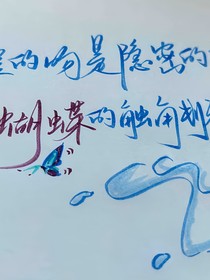 的吻是隐密的
蝴蝶的触角划